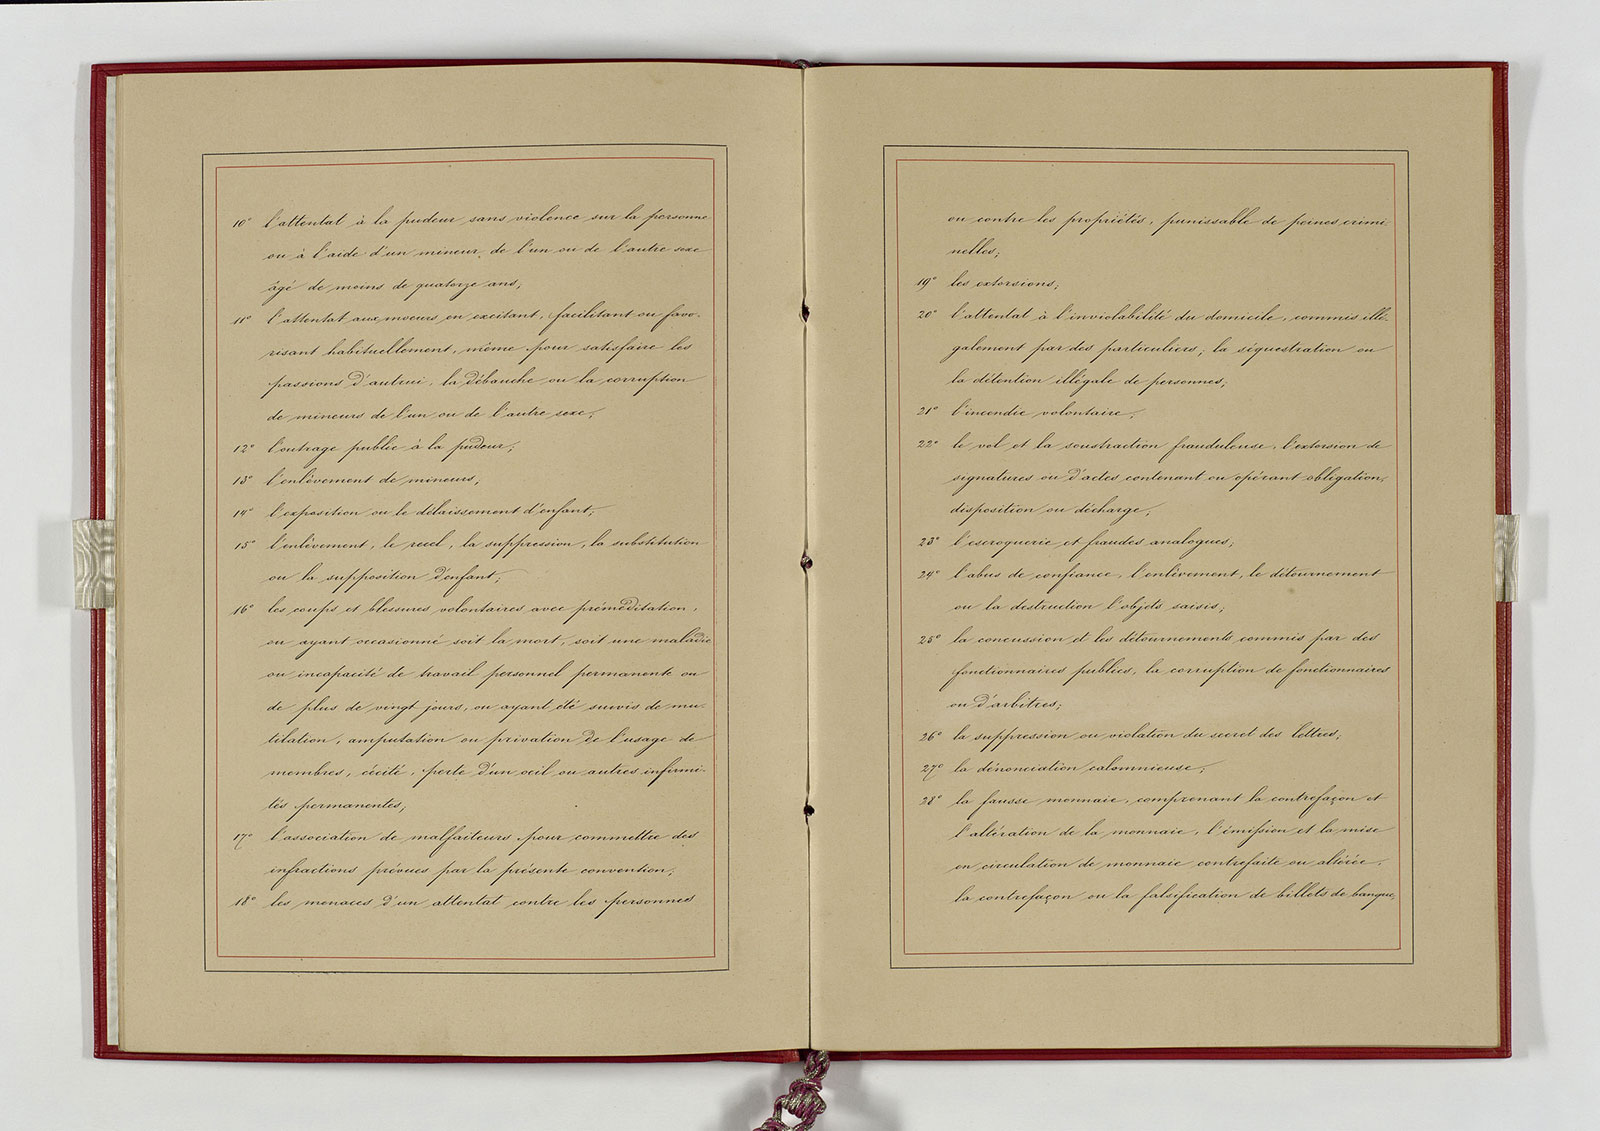 10° l'attentat à la pudeur sans violence sur la personne
ou à l'aide d'un mineur, de l'un ou de l'autre sexe
âgé de moins de quatorze ans;
11° l'attentat aux moeurs en excitant, facilitant ou favo-
risant habituellement, même pour satisfaire les
passions d'autrui, la débauche ou la corruption
de mineurs de l'un ou de l'autre sexe;
12° l'outrage public à la pudeur;
13° l'enlèvement de mineurs;
14° l'exposition ou le délaissement d'enfant;
15° l'enlèvement, le recel, la suppression, la substitution
ou la supposition d'enfant;
16° les coups et blessures volontaires avec préméditation,
ou ayant occasionné soit la mort, soit une maladie
ou incapacité de travail personnel permanente ou
de plus de vingt jours, ou ayant été suivis de mu-
tilation, amputation ou privation de l'usage de
membres, cécité, perte d'un oeil ou autres infirmi-
tés permanentes;
17° l'association de malfaiteurs pour commettre des
infractions prévues par la présente convention;
18° les menaces d'un attentat contre les personnes
ou contre les propriétés, punissable de peines crimi-
nelles;
19° les extorsions;
20° l'attentat à l'inviolabilité du domicile, commis illé-
galement par des particuliers; la séquestration ou
la détention illégale de personnes;
21° l'incendie volontaire;
22° le vol et la soustraction frauduleuse, l'extorsion de
signatures ou d'actes contenant ou opérant obligation,
disposition ou décharge;
23° l'escroquerie et fraudes analogues;
24° l'abus de confiance, l'enlèvement, le détournement
ou la destruction d'objets saisis;
25° la concussion et les détournements commis par des
fonctionnaires publics, la corruption de fonctionnaires
ou d'arbitres;
26° la suppression ou violation du secret des lettres;
27° la dénonciation calomnieuse;
28° la fausse monnaie, comprenant la contrefaçon et
l'altération de la monnaie, l'émission et la mise
en circulation de monnaie contrefaite ou altérée,
la contrefaçon ou la falsification de billets de banque,